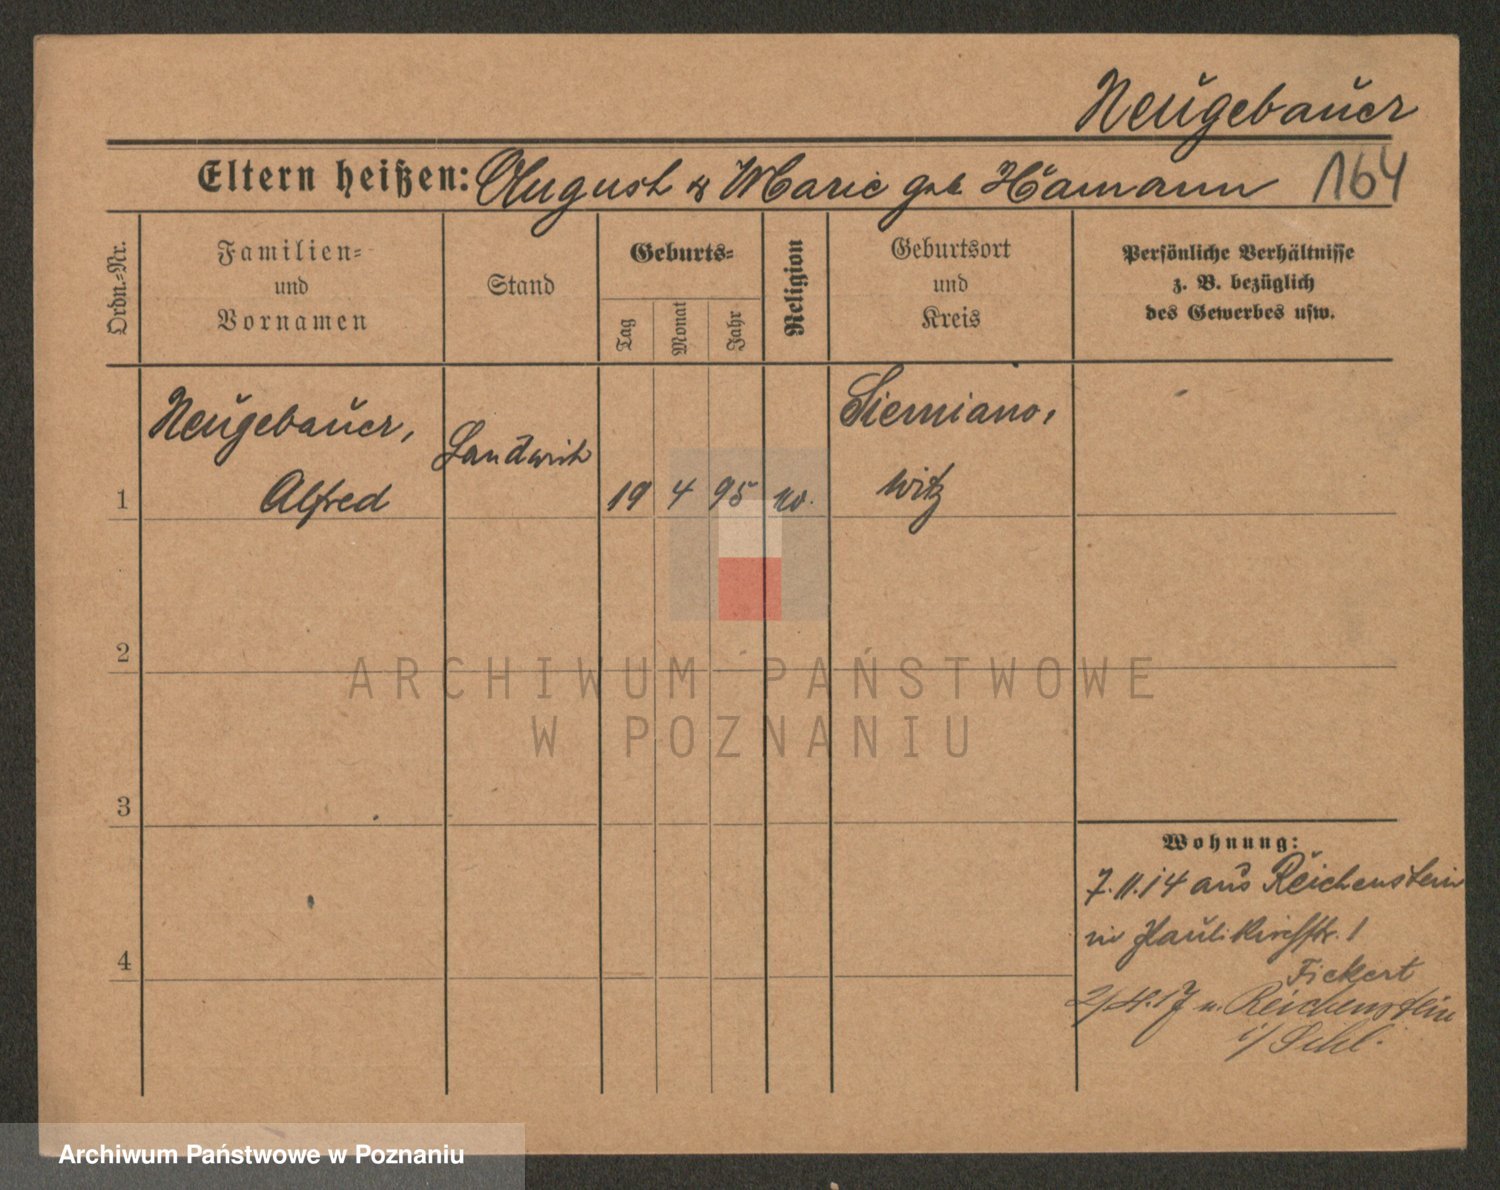 Neugebauer
Eltern heißen: August & Marie geb Hamann 164
Ordn.-Nr.
Familien-
und
Vornamen
Stand
Geburts-
Tag
Monat
Jahr
Religion
Geburtsort
und
Kreis
Persönliche Verhältnisse
z. B. bezüglich
des Gewerbes usw.
Neugebauer,
Alfred
Landwirth
1
19 4 95
Siemiano,
witz
2
ARCHIWUM PAŃSTWOWE
W POZNANIU
3
Wohnung:
7.11.14 aus Reichenstein
in Paulikirchstr. 1
4
Fickert
2/4.17 n. Reichenstein
i/ Schl.
Archiwum Państwowe w Poznaniu